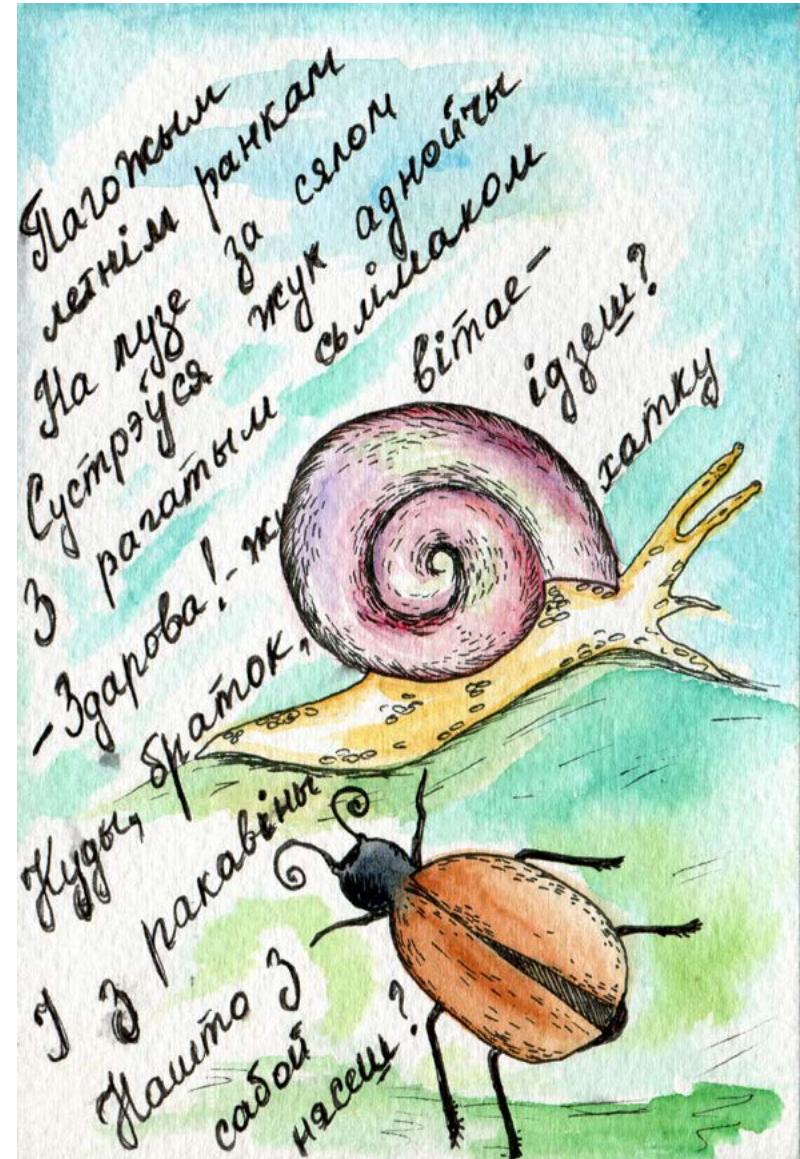 Пагожым
летнім ранкам
На лузе за сялом
Сустрэўся жук аднойчы
З рагатым сьлімаком
-Здарова!- жу вітае-
Куды, браток, ідзеш?
І з ракавіны хатку
Нашто з
сабой
нясеш?